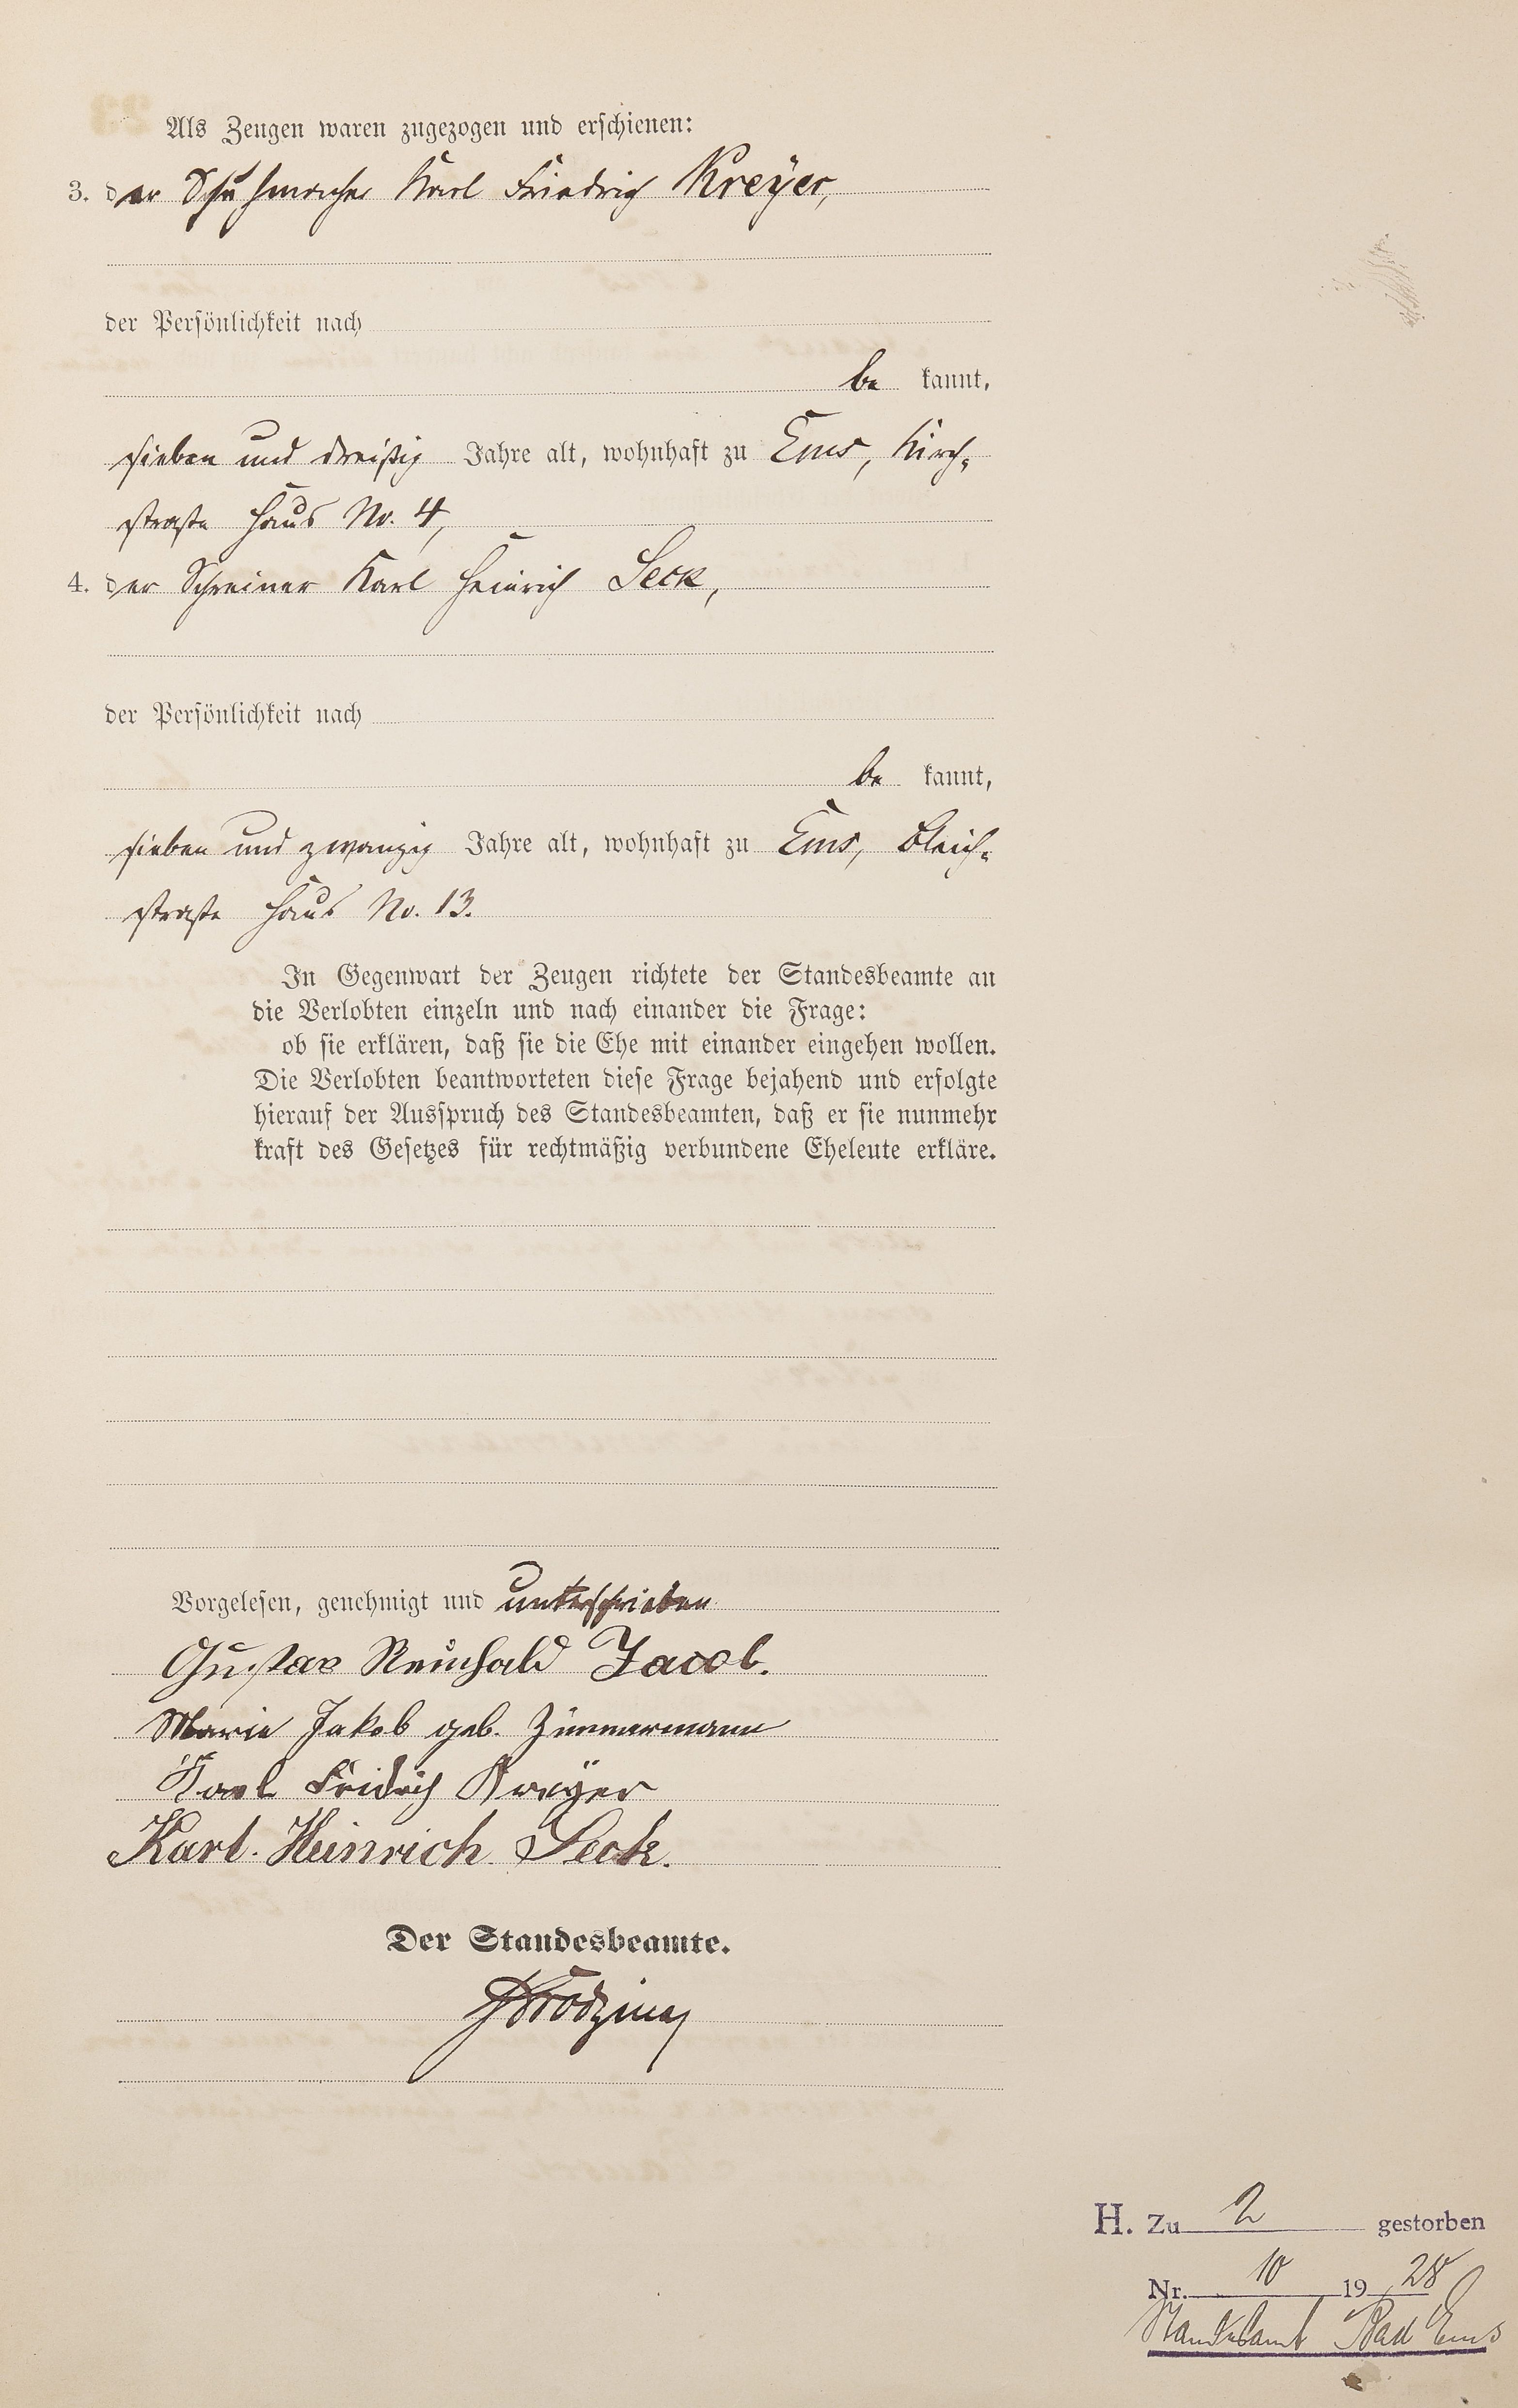 Als Zeugen waren zugezogen und erschienen:
3. der Schuhmacher Karl Friedrich Kreyer,
der Persönlichkeit nach
be kannt,
sieben und dreißig Jahre alt, wohnhaft zu Ems, Kirch-
straße Haus No. 4,
4. der Schreiner Karl Heinrich Seck,
der Persönlichkeit nach
be kannt,
sieben und zwanzig Jahre alt, wohnhaft zu Ems, Bleich-
straße Haus No. 13.
In Gegenwart der Zeugen richtete der Standesbeamte an
die Verlobten einzeln und nach einander die Frage:
ob sie erklären, daß sie die Ehe mit einander eingehen wollen.
Die Verlobten beantworteten diese Frage bejahend und erfolgte
hierauf der Ausspruch des Standesbeamten, daß er sie nunmehr
kraft des Gesetzes für rechtmäßig verbundene Eheleute erkläre.
Vorgelesen, genehmigt und unterschrieben
Gustav Reinhold Jacob.
Marie Jakob geb. Zimmermann
Karl Fridrich Kreyer
Karl Heinrich Seck.
Der Standesbeamte.
H. Zu 2 gestorben
Nr. 10 1928
Standesamt Bad Ems